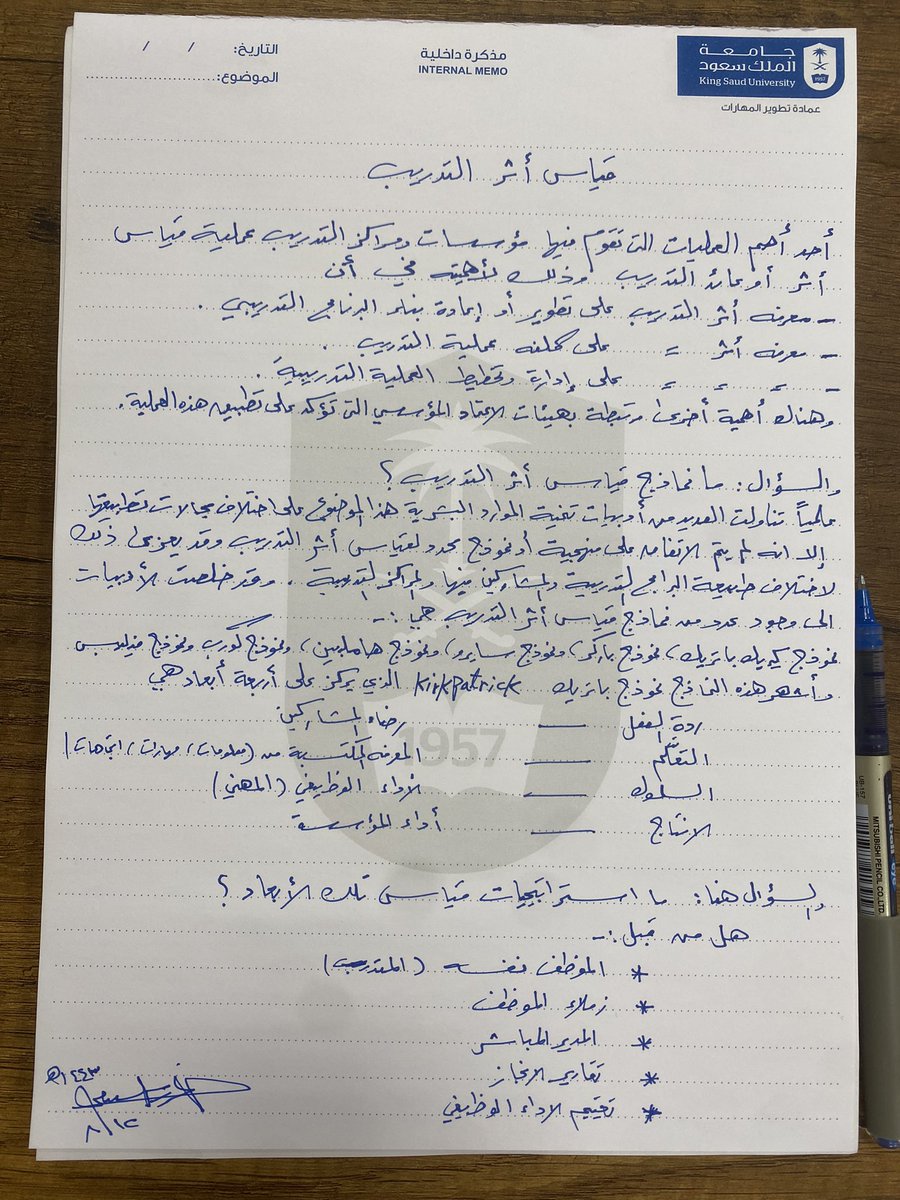 جامعة
الملك سعود
King Saud University
1957
عمادة تطوير المهارات
مذكرة داخلية
INTERNAL MEMO
التاريخ: / /
الموضوع:
قياس أثر التدريب
أحد أهم العمليات التي تقوم فيها مؤسسات ومراكز التدريب عملية قياس
أثر أو عائد التدريب وذلك لأهميته في أن
- معرفة أثر التدريب على تطوير أو إعادة بناء البرنامج التدريبي .
- معرفة أثر = على كلفة عملية التدريب .
- = = = على إدارة وتخطيط العملية التدريبية .
وهناك أهمية أخرى مرتبطة بهيئات الاعتماد المؤسسي التي تؤكد على تطبيق هذه العملية .
والسؤال : ما نماذج قياس أثر التدريب ؟
علمياً تناولت العديد من أدبيات تنمية الموارد البشرية هذا الموضوع على اختلاف مجالات تطبيقها
إلا انه لم يتم الاتفاق على منهجية أو نموذج محدد لقياس أثر التدريب وقد يعزى ذلك
لاختلاف طبيعة البرامج التدريبية والمشاركين فيها والمراكز التدريبية . وقد خلصت الأدبيات
الى وجود عدد من نماذج قياس أثر التدريب هي :-
نموذج كيرك باتريك ، نموذج باركر ، ونموذج سايرو ، ونموذج هاملبين ، ونموذج كورب ونموذج فيلبس
وأشهر هذه النماذج نموذج باتريك Kirkpatrick الذي يركز على أربعة أبعاد هي
ردة الفعل — رضاء المشاركين
التعلّم — المعرفة المكتسبة من (معلومات ، مهارات ، اتجاهات)
السلوك — الأداء الوظيفي (المهني)
الانتاج — أداء المؤسسة
1957
والسؤال هنا : ما استراتيجيات قياس تلك الأبعاد ؟
هل من قبل :-
* الموظف نفسه (المتدرب)
* زملاء الموظف
* المدير المباشر
* تقارير الانجاز
* تقييم الاداء الوظيفي
١٤٤٣ه
٨/١٢
UB-157
MITSUBISHI PENCIL CO.,LTD.
uni-ball eye